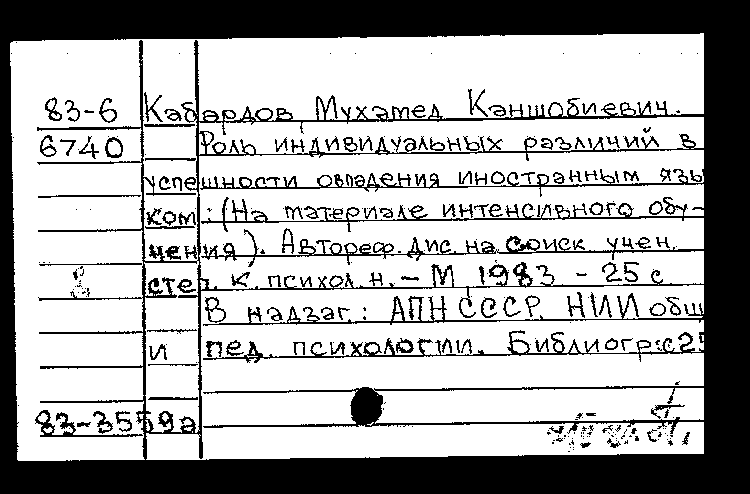 83-6 Кабардов Мухамед Каншобиевич.
6740 Роль индивидуальных различий в
успешности овладения иностранным язы
ком : (На материале интенсивного обу-
чения). Автореф. дис. на соиск учен.
степ. к. психол. н. – М 1983 - 25 с
В надзаг.: АПН СССР. НИИ общ
и пед. психологии. Библиогр: с 25
83-3559а